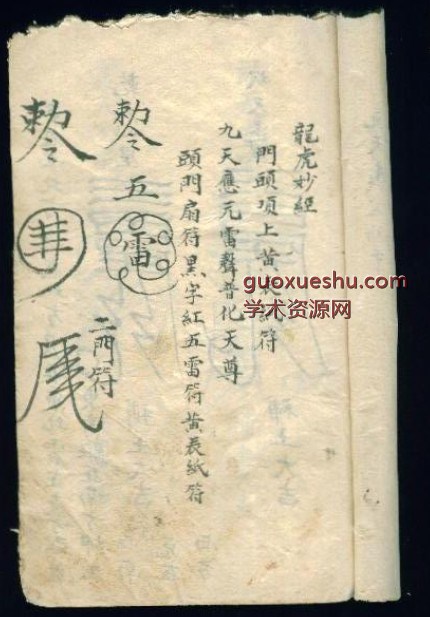 龍虎妙經
門頭項上黃表紙符
九天應元雷聲普化天尊
頭門扇符黑字紅五雷符黃表紙符
勅令五雷
二門符
勅令
guoxueshu.com
学术资源网